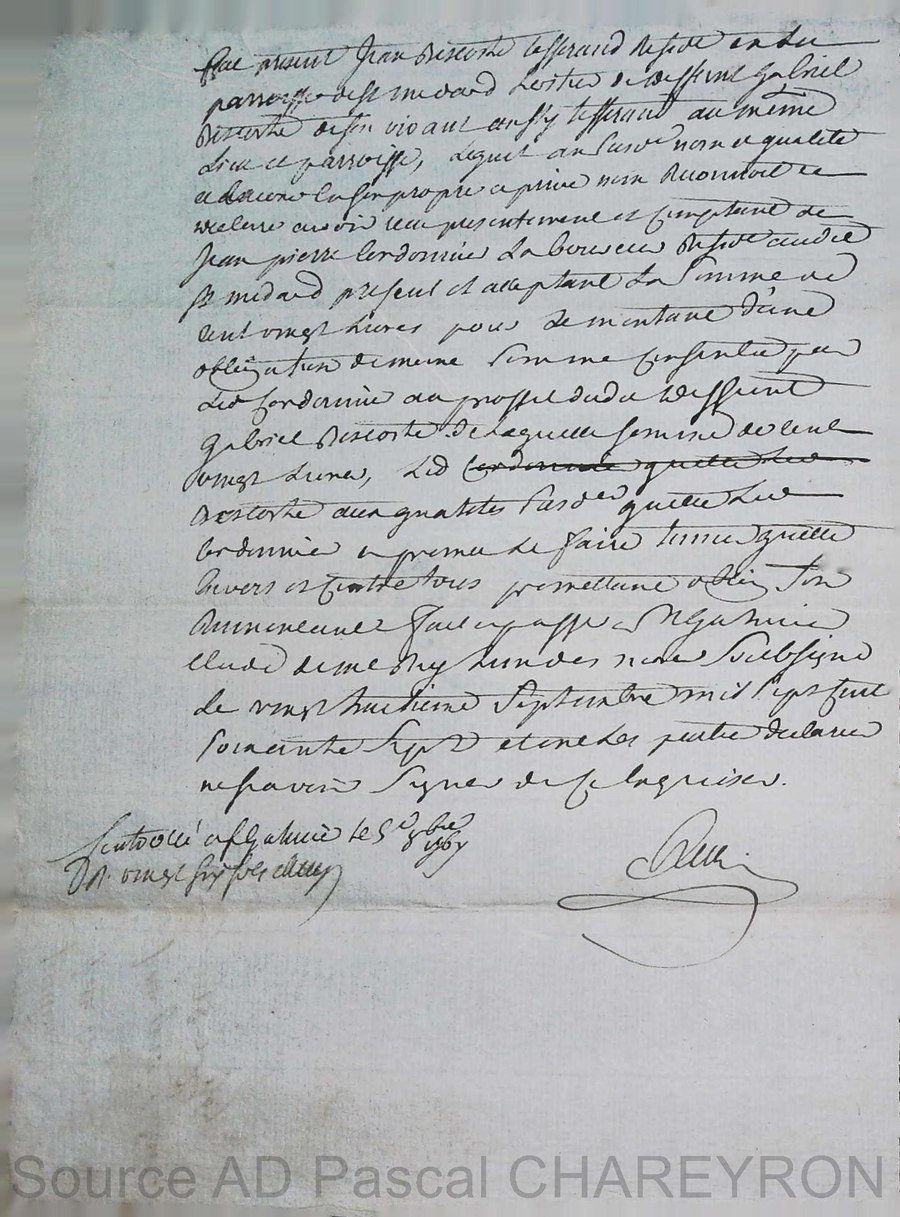 Fut present Jean Descoste tisserand Reside en la
parroisse de st medard heritier de deffunt Gabriel
Descoste de son vivant aussy tisserand au même
Lieu et parroisse, Lequel au susd nom et qualité
et encore En son propre et privé nom Reconnoit et
declare avoir reçu presentement et Comptant de
Jean pierre Cordonnier Laboureur Reside audit
st medard present et acceptant La Somme de
Cent vingt Livres pour Le montant d'une
obligation de meme Somme Consentie par
Led Cordonnier au proffit dudit deffunt
Gabriel Descoste. De Laquelle Somme de Cent
vingt Livres, Led Cordonnier quitte Led
Descoste aux qualités susd quitte Led
Cordonnier et promet Le faire tenir quitte
Envers et Contre tous promettant oblig
Renonceant Fait et passé a st Galmier
Etude de me nore Soubsigné
Le vingt huitieme Septembre mil Sept Cent
Soixante Sept et ont Les partie declarer
ne savoir Signer de Ce Enquises.
Controllé a st Galmier le 5e 8bre 1767
vingt six sols
Source AD Pascal CHAREYRON